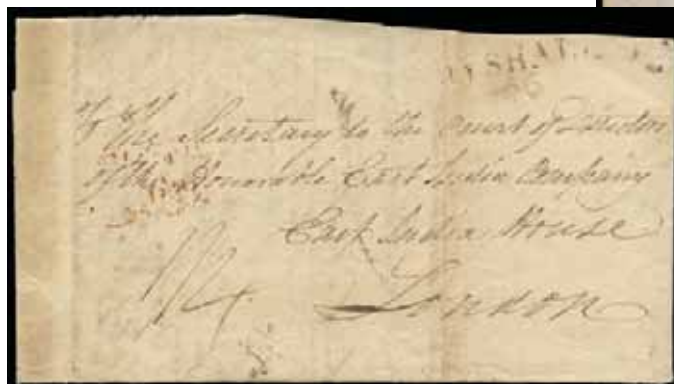 The Secretary to the Court of Directors
of the Honorable East India Company
East India House
London